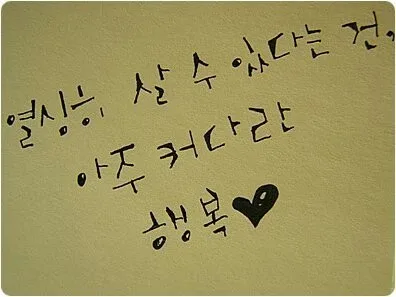 열심히 살 수 있다는 건,
아주 커다란
행복♥